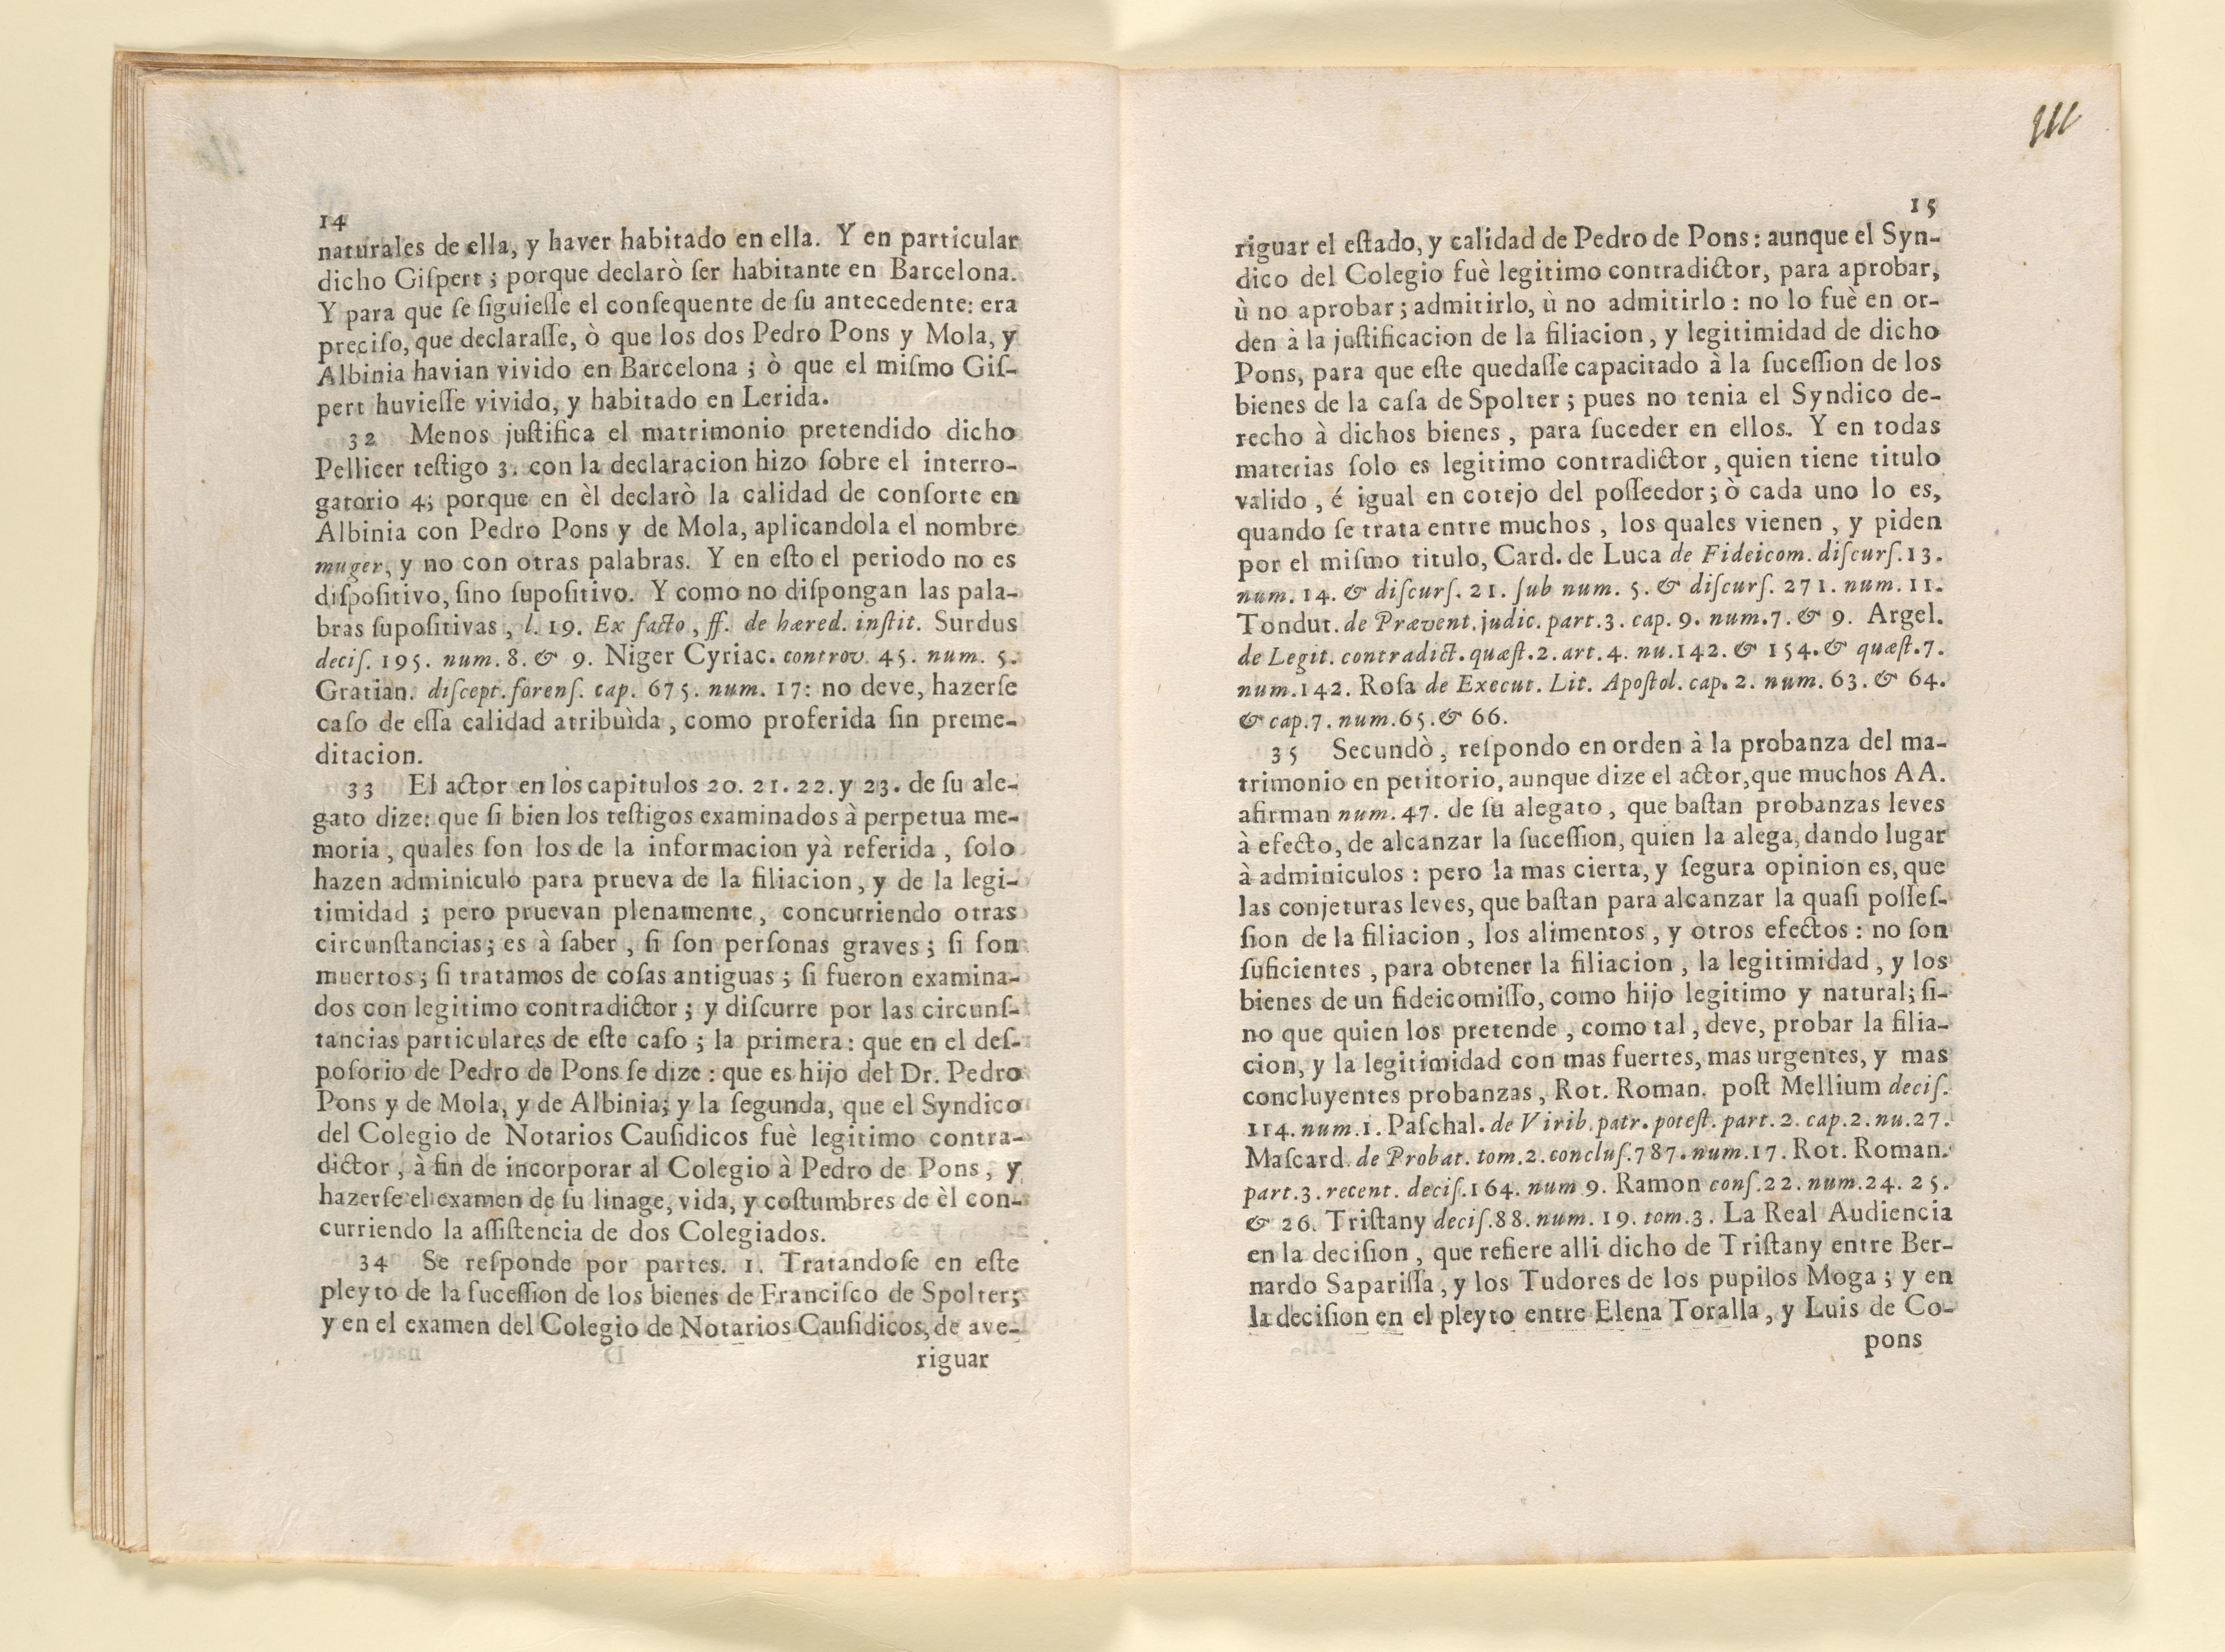 14
naturales de ella, y haver habitado en ella. Y en particular
dicho Giſpert; porque declarò ſer habitante en Barcelona.
Y para que ſe ſiguieſſe el conſequente de ſu antecedente: era
preciſo, que declaraſſe, ò que los dos Pedro Pons y Mola, y
Albinia havian vivido en Barcelona; ò que el miſmo Giſ-
pert huvieſſe vivido, y habitado en Lerida.
32 Menos juſtifica el matrimonio pretendido dicho
Pellicer teſtigo 3. con la declaracion hizo ſobre el interro-
gatorio 4; porque en èl declarò la calidad de conſorte en
Albinia con Pedro Pons y de Mola, aplicandola el nombre
muger, y no con otras palabras. Y en eſto el periodo no es
diſpoſitivo, ſino ſupoſitivo. Y como no diſpongan las pala-
bras ſupoſitivas, l. 19. Ex facto, ff. de hæred. inſtit. Surdus
deciſ. 195. num. 8. & 9. Niger Cyriac. controv. 45. num. 5.
Gratian. diſcept. forenſ. cap. 675. num. 17: no deve, hazerſe
caſo de eſſa calidad atribuìda, como proferida ſin preme-
ditacion.
33 El actor en los capitulos 20. 21. 22. y 23. de ſu ale-
gato dize: que ſi bien los teſtigos examinados à perpetua me-
moria, quales ſon los de la informacion yà referida, ſolo
hazen adminiculo para prueva de la filiacion, y de la legi-
timidad; pero pruevan plenamente, concurriendo otras
circunſtancias; es à ſaber, ſi ſon perſonas graves; ſi ſon
muertos; ſi tratamos de coſas antiguas; ſi fueron examina-
dos con legitimo contradictor; y diſcurre por las circunſ-
tancias particulares de eſte caſo; la primera: que en el deſ-
poſorio de Pedro de Pons ſe dize: que es hijo del Dr. Pedro
Pons y de Mola, y de Albinia; y la ſegunda, que el Syndico
del Colegio de Notarios Cauſidicos fuè legitimo contra-
dictor, à fin de incorporar al Colegio à Pedro de Pons, y
hazerſe el examen de ſu linage, vida, y coſtumbres de èl con-
curriendo la aſſiſtencia de dos Colegiados.
34 Se reſponde por partes. 1. Tratandoſe en eſte
pleyto de la ſuceſſion de los bienes de Franciſco de Spolter;
y en el examen del Colegio de Notarios Cauſidicos, de ave-
riguar
111
15
riguar el eſtado, y calidad de Pedro de Pons: aunque el Syn-
dico del Colegio fuè legitimo contradictor, para aprobar,
ù no aprobar; admitirlo, ù no admitirlo: no lo fuè en or-
den à la juſtificacion de la filiacion, y legitimidad de dicho
Pons, para que eſte quedaſſe capacitado à la ſuceſſion de los
bienes de la caſa de Spolter; pues no tenia el Syndico de-
recho à dichos bienes, para ſuceder en ellos. Y en todas
materias ſolo es legitimo contradictor, quien tiene titulo
valido, é igual en cotejo del poſſeedor; ò cada uno lo es,
quando ſe trata entre muchos, los quales vienen, y piden
por el miſmo titulo, Card. de Luca de Fideicom. diſcurſ. 13.
num. 14. & diſcurſ. 21. ſub num. 5. & diſcurſ. 271. num. 11.
Tondut. de Prævent. judic. part. 3. cap. 9. num. 7. & 9. Argel.
de Legit. contradict. quæſt. 2. art. 4. nu. 142. & 154. & quæſt. 7.
num. 142. Roſa de Execut. Lit. Apoſtol. cap. 2. num. 63. & 64.
& cap. 7. num. 65. & 66.
35 Secundò, reſpondo en orden à la probanza del ma-
trimonio en petitorio, aunque dize el actor, que muchos AA.
afirman num. 47. de ſu alegato, que baſtan probanzas leves
à efecto, de alcanzar la ſuceſſion, quien la alega, dando lugar
à adminiculos: pero la mas cierta, y ſegura opinion es, que
las conjeturas leves, que baſtan para alcanzar la quaſi poſſeſ-
ſion de la filiacion, los alimentos, y otros efectos: no ſon
ſuficientes, para obtener la filiacion, la legitimidad, y los
bienes de un fideicomiſſo, como hijo legitimo y natural; ſi-
no que quien los pretende, como tal, deve, probar la filia-
cion, y la legitimidad con mas fuertes, mas urgentes, y mas
concluyentes probanzas, Rot. Roman. poſt Mellium deciſ.
114. num. 1. Paſchal. de Virib. patr. poteſt. part. 2. cap. 2. nu. 27.
Maſcard. de Probat. tom. 2. concluſ. 787. num. 17. Rot. Roman.
part. 3. recent. deciſ. 164. num 9. Ramon conſ. 22. num. 24. 25.
& 26. Triſtany deciſ. 88. num. 19. tom. 3. La Real Audiencia
en la deciſion, que refiere alli dicho de Triſtany entre Ber-
nardo Sapariſſa, y los Tudores de los pupilos Moga; y en
la deciſion en el pleyto entre Elena Toralla, y Luis de Co-
pons